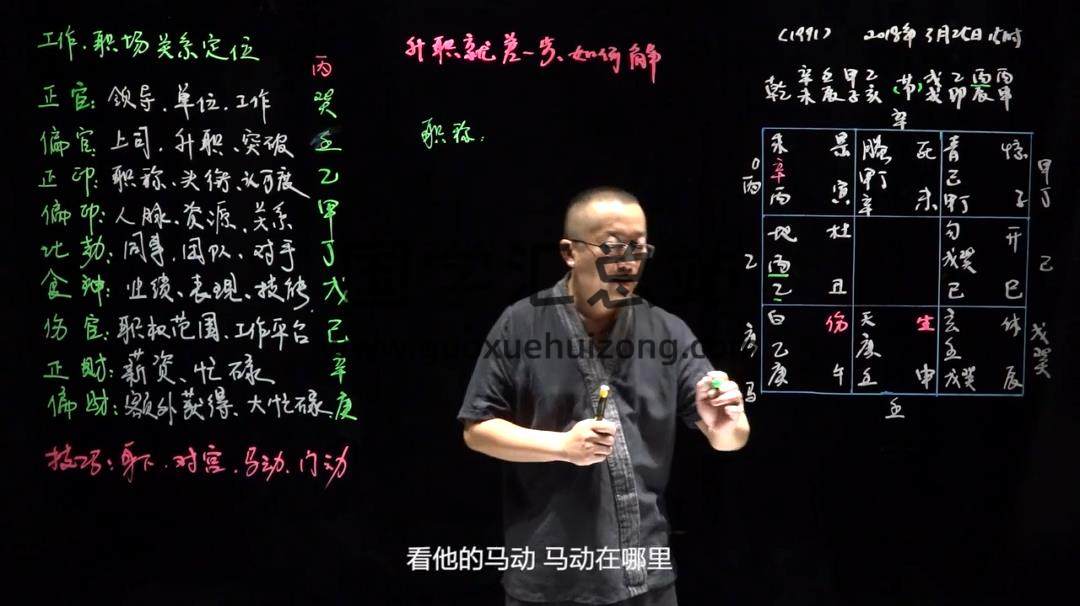 工作、职场关系定位
丙
正官：领导、单位、工作 癸
偏官：上司、升职、突破 壬
正印：职称、头衔、认可度 乙
偏印：人脉、资源、关系 甲
比劫：同事、团队、对手 丁
食神：业绩、表现、技能 戊
伤官：职权范围、工作平台 己
正财：薪资、忙碌 辛
偏财：额外获得、大忙碌 庚
技巧：身下、对宫、马动、门动
升职就差一步、如何解
职称：
(1991)
乾 辛 壬 甲 乙
未 辰 子 亥
戊 乙 丙 丙
戌 卯 辰 申
辛
景 腾 死 青
辛 甲丁 己
丙 寅 辛 未 甲丁
丙
甲丁
地 杜 勾 开
丙 戊癸
乙 丑 己 巳
乙
己
白 伤 天 生 玄 休
乙 庚 壬
庚 午 壬 申 戊癸 辰
庚
戊癸
马
壬
国学汇总站
www.guoxuehuizong.com
看他的马动 马动在哪里